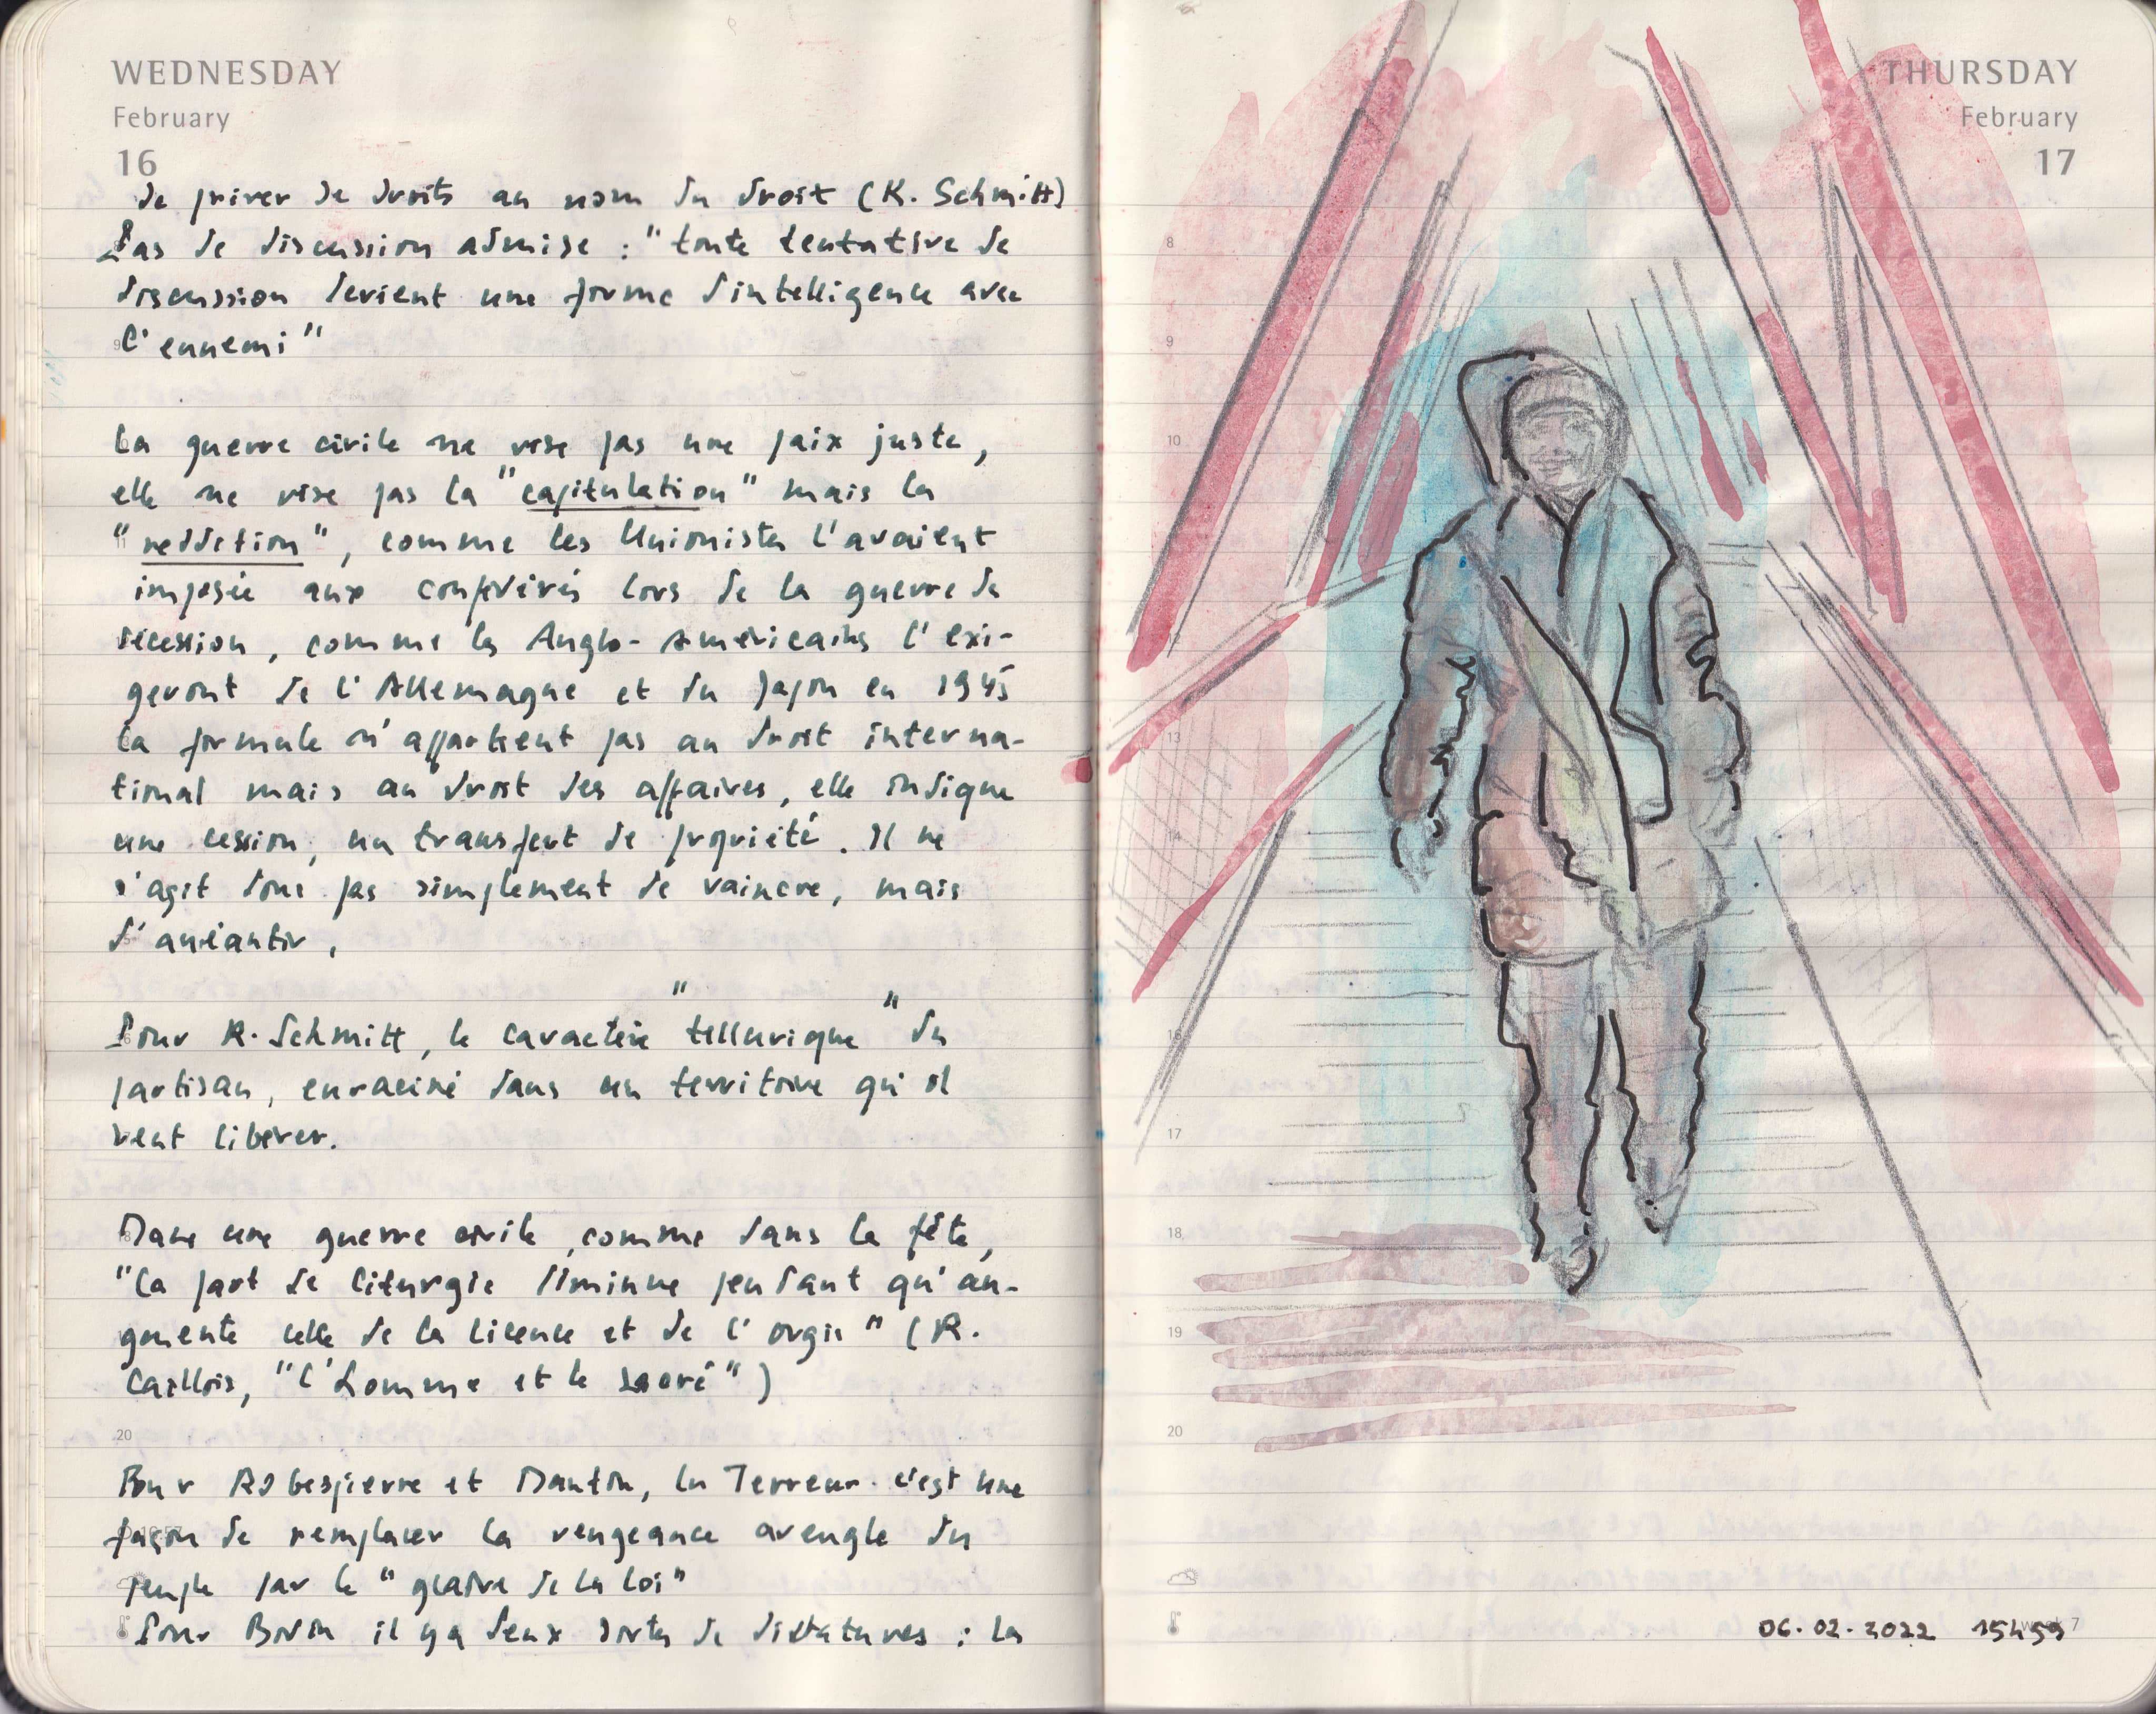 WEDNESDAY
February
16
de priver de droits au nom du droit (K. Schmitt)
Pas de discussion admise : "toute tentative de
discussion devient une forme d'intelligence avec
9
l'ennemi"
La guerre civile ne vise pas une paix juste,
elle ne vise pas la "capitulation" mais la
"reddition", comme les Unionistes l'avaient
imposée aux confédérés lors de la guerre de
sécession, comme les Anglo-Américains l'exi-
geront de l'Allemagne et du Japon en 1945
la formule n'appartient pas au droit interna-
tional mais au droit des affaires, elle indique
une cession, un transfert de propriété. Il ne
s'agit donc pas simplement de vaincre, mais
d'anéantir,
Pour K. Schmitt, le caractère "tellurique" du
partisan, enraciné dans un territoire qu'il
veut libérer.
Dans une guerre civile, comme dans la fête,
"la part de liturgie diminue pendant qu'au-
gmente celle de la licence et de l'orgie" (R.
Caillois, "l'homme et le sacré")
20
Pour Robespierre et Danton, la Terreur c'est une
façon de remplacer la vengeance aveugle du
peuple par le "glaive de la loi"
Pour Bodin il y a deux sortes de dictatures : la
THURSDAY
February
17
8
9
10
12
13
14
16
17
18
19
20
06.02.2022 15h59
7